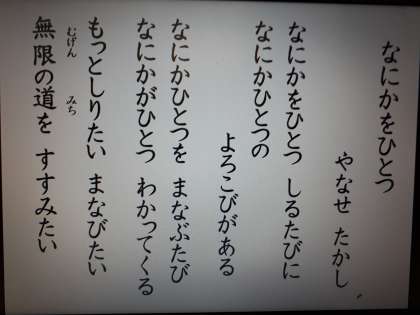 なにかをひとつ
やなせ たかし
なにかをひとつ しるたびに
なにかひとつの
よろこびがある
なにかひとつを まなぶたび
なにかがひとつ わかってくる
もっとしりたい まなびたい
無限の道を すすみたい
むげん みち